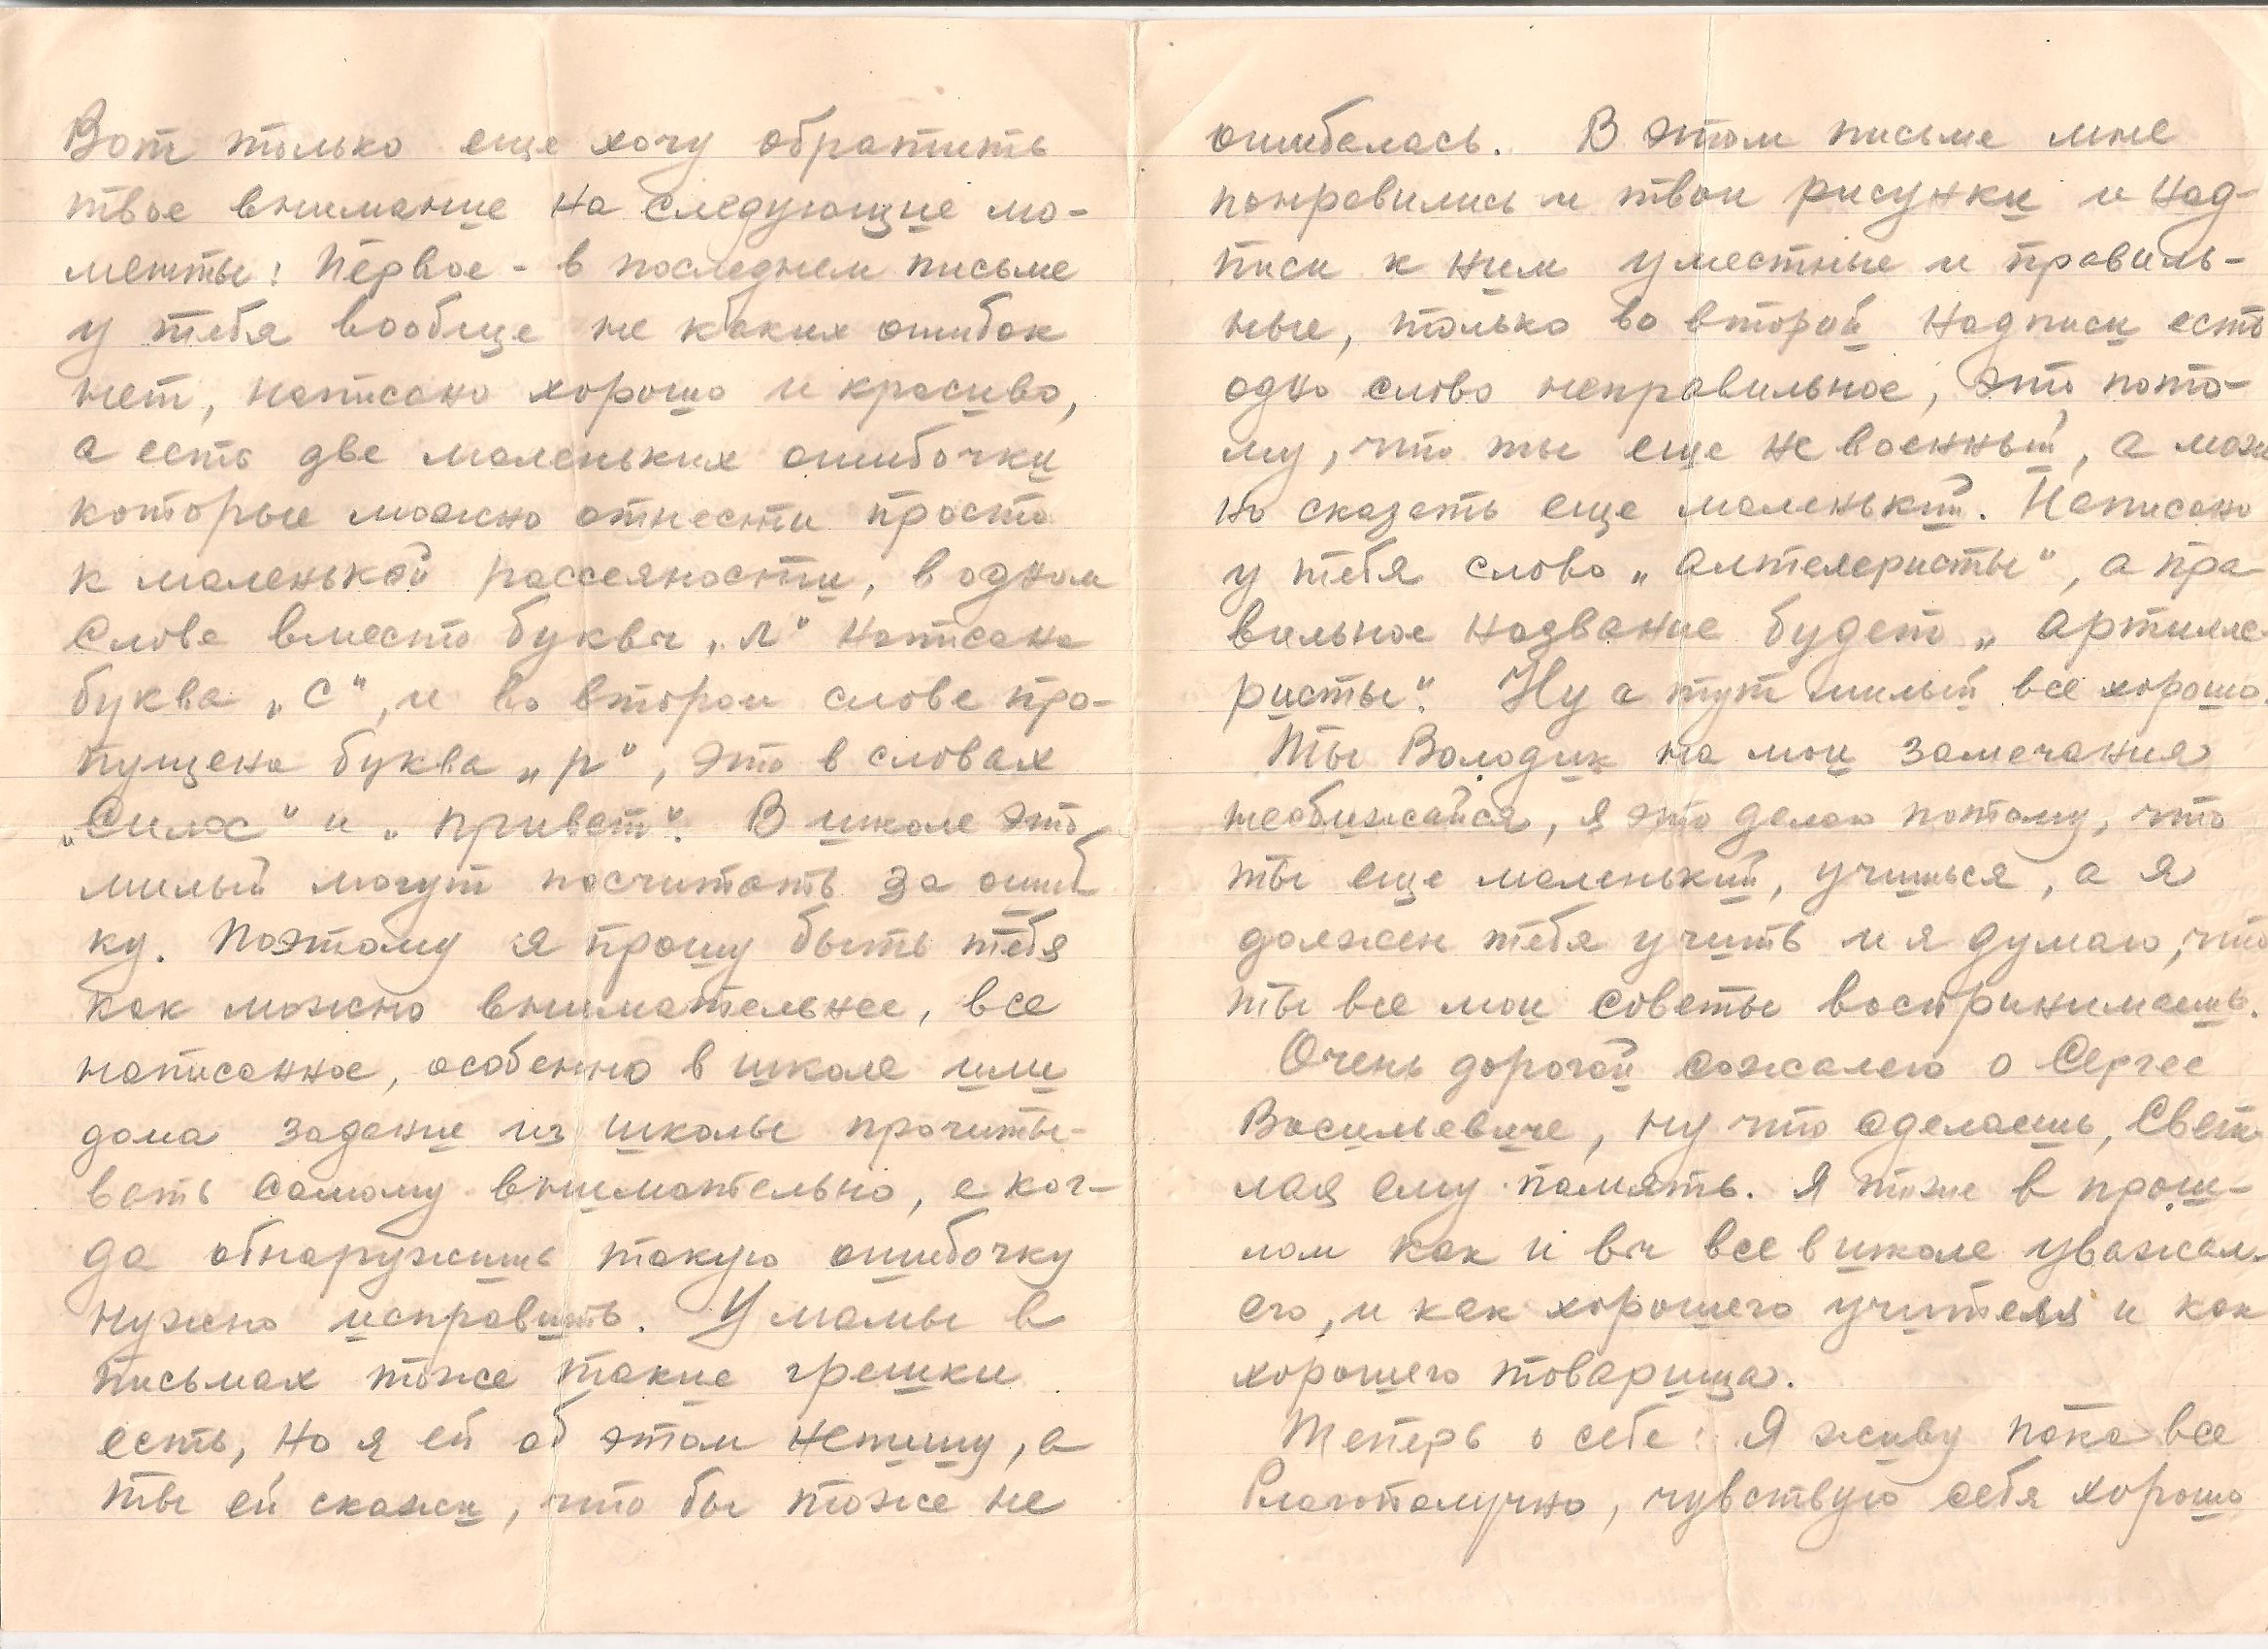 Вот только еще хочу обратить
твое внимание на следующие мо-
менты: Первое - в последнем письме
у тебя вообще не каких ошибок
нет, написано хорошо и красиво,
а есть две маленьких ошибочки
которые можно отнести просто
к маленькой рассеяности, в одном
слове вместо буквы „л" написана
буква „с", и во втором слове про-
пущена буква „р", это в словах
„Силос" и „привет". В школе это
милый могут посчитать за ошиб
ку. Поэтому я прошу быть тебя
как можно внимательнее, все
написанное, особенно в школе или
дома задание из школы прочиты-
вать самому внимательно, а ког-
да обнаружишь такую ошибочку
нужно исправить. У мамы в
письмах тоже такие грешки
есть, но я ей об этом непишу, а
ты ей скажи, что бы тоже не
ошибалась. В этом письме мне
понравились и твои рисунки и над-
писи к ним уместные и правиль-
ные, только во второй надписи есть
одно слово неправильное, это пото-
му, что ты еще не военный, а мож
но сказать еще маленький. Написано
у тебя слово „алтелеристы", а пра
вильное название будет „артилле-
ристы". Ну а тут милый все хорошо.
Ты Володик на мои замечания
необижайся, я это делаю потому, что
ты еще маленький, учишься, а я
должен тебя учить и я думаю, что
ты все мои советы воспринимаешь.
Очень дорогой сожалею о Сергее
Васильевиче, ну что сделаешь, Свет
лая ему память. Я тоже в прош-
лом как и вы все в школе уважал
его, и как хорошего учителя и как
хорошего товарища.
Теперь о себе: Я живу пока все
благополучно, чувствую себя хорошо